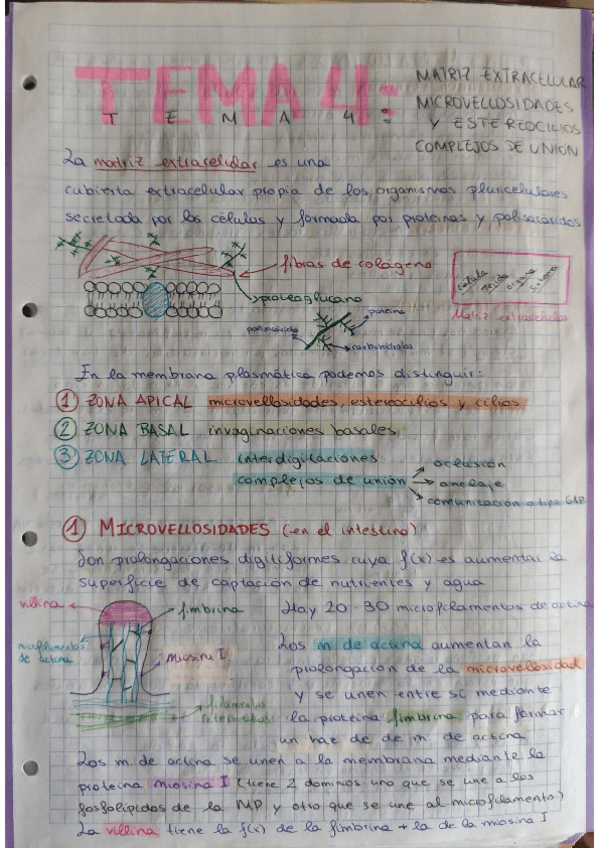 TEMA 4:
T E M A 4:
MATRIZ EXTRACELULAR
MICROVELLOSIDADES
Y ESTEREOCILIOS
COMPLEJOS DE UNIÓN
La matriz extracelular es una
cubierta extracelular propia de los organismos pluricelulares
secretada por las células y formada por proteínas y polisacáridos
fibras de colágeno
proteoglucano
célula
tejido
órgano
sistema
Matriz extracelular
proteína
polisacárido
carbohidratos
En la membrana plasmática podemos distinguir:
1 ZONA APICAL microvellosidades, estereocilios y cilios
2 ZONA BASAL invaginaciones basales
3 ZONA LATERAL interdigitaciones
complejos de unión
oclusión
anclaje
comunicación o tipo GAP
1 MICROVELLOSIDADES (en el intestino)
Son prolongaciones digitiformes cuya f(x) es aumentar la
superficie de captación de nutrientes y agua
villina
fimbrina
microfilamentos
de actina
miosina I
filamentos
intermedios
Hay 20-30 microfilamentos de actina
Los m. de actina aumentan la
prolongación de la microvellosidad
y se unen entre sí mediante
la proteína fimbrina para formar
un haz de de m. de actina
Los m. de actina se unen a la membrana mediante la
proteína miosina I (tiene 2 dominios uno que se une a los
fosfolípidos de la MP y otro que se une al microfilamento)
La villina tiene la f(x) de la fimbrina + la de la miosina I